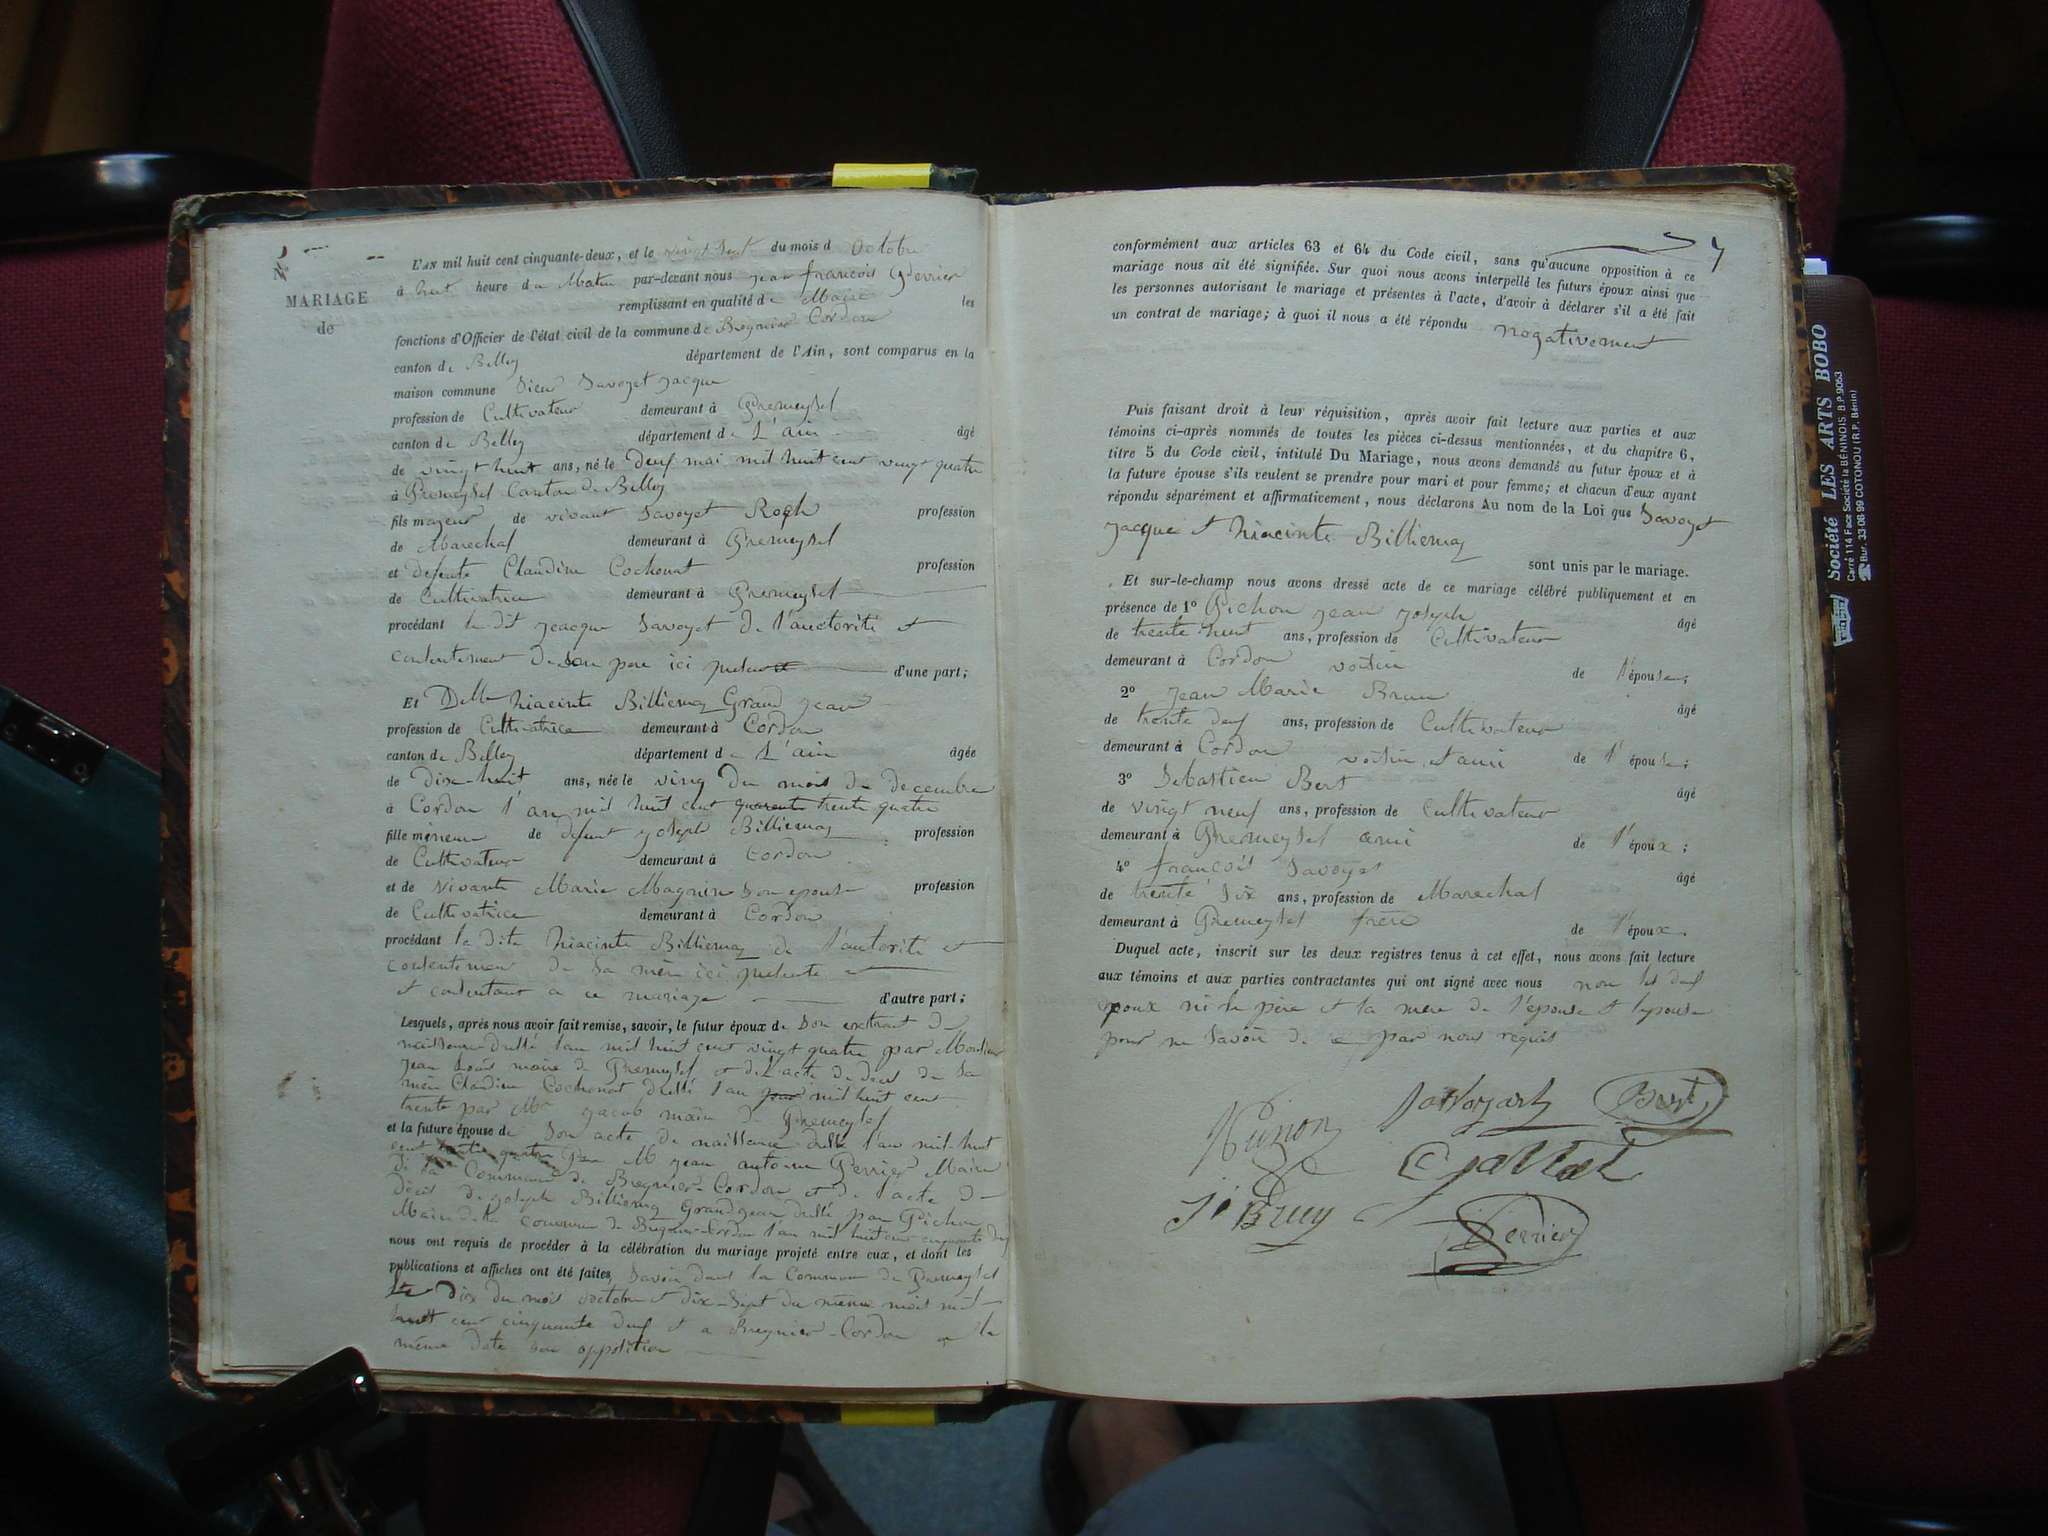 MARIAGE
de
L'AN mil huit cent cinquante-deux, et le vingt sept du mois d octobre
à huit heure du Matin par-devant nous jean françois Perrier
remplissant en qualité de Maire les
fonctions d'Officier de l'état civil de la commune de Bregnier Cordon
canton de Belley département de l'Ain, sont comparus en la
maison commune Sieur Savoyet jacque
profession de Cultivateur demeurant à Premeysel
canton de Belley département de L'ain âgé
de vingt huit ans, né le deux mai mil huit cent vingt quatre
à Premeysel Canton de Belley
fils majeur de vivant Savoyet Roch profession
de Marechal demeurant à Premeysel
et defunte Claudine Cochonat profession
de Cultivatrice demeurant à Premeysel
procédant le dit jacque Savoyet de l'auctorité et
contentement de son pere ici present d'une part;
Et Delle hiacinte Billiemaz Grand jean
profession de Cultivatrice demeurant à Cordon
canton de Belley département de L'ain âgée
de dix-huit ans, née le ving du mois de decembre
à Cordon l'an mil huit cent quarente trente quatre
fille mineure de defunt joseph Billiemaz profession
de Cultivateur demeurant à Cordon
et de vivante Marie Magnin son epouse profession
de Cultivatrice demeurant à Cordon
procédant la dite hiacinte Billiemaz de l'autorité et
consentement de sa mère ici presente
et contentant a ce mariage d'autre part;
Lesquels, après nous avoir fait remise, savoir, le futur époux de son extrait de
naissance dellé l'an mil huit cent vingt quatre par Monsieur
jean Louis maire de Premeysel et de l'acte de deces de sa
mère Claudine Cochonat dellé l'an mil huit cent
trente par Mr jacob maire de Premeysel
et la future épouse de son acte de naissance dellé l'an mil huit
cent trente quatre par M jean antoine Perrier Maire
de la Commune de Bregnier-Cordon et de l'acte de
décès de joseph Billiemaz Grandjean dellé par Pichon
Maire de la commune de Bregnier-Cordon l'an mil huit cent cinquante deux
nous ont requis de procéder à la célébration du mariage projeté entre eux, et dont les
publications et affiches ont été faites, savoir dans la Commune de Premeysel
le dix du mois octobre et dix-sept du même mois mil
huit cent cinquante deux et a Bregnier-Cordon a la
même date son opposition
7
conformément aux articles 63 et 64 du Code civil, sans qu'aucune opposition à ce
mariage nous ait été signifiée. Sur quoi nous avons interpellé les futurs époux ainsi que
les personnes autorisant le mariage et présentes à l'acte, d'avoir à déclarer s'il a été fait
un contrat de mariage; à quoi il nous a été répondu nogativement
Puis faisant droit à leur réquisition, après avoir fait lecture aux parties et aux
témoins ci-après nommés de toutes les pièces ci-dessus mentionnées, et du chapitre 6,
titre 5 du Code civil, intitulé Du Mariage, nous avons demandé au futur époux et à
la future épouse s'ils veulent se prendre pour mari et pour femme; et chacun d'eux ayant
répondu séparément et affirmativement, nous déclarons Au nom de la Loi que Savoyet
jacque et hiacinte Billiemaz
sont unis par le mariage.
Et sur-le-champ nous avons dressé acte de ce mariage célébré publiquement et en
présence de 1º Pichon jean joseph âgé
de trente huit ans, profession de Cultivateur
demeurant à Cordon voisin de l'épouse;
2º jean Marie Brun âgé
de trente deux ans, profession de Cultivateur
demeurant à Cordon voisin et ami de l'épouse;
3º Sebastien Bert âgé
de vingt neuf ans, profession de Cultivateur
demeurant à Premeysel ami de l'époux;
4º françois Savoyet âgé
de trente six ans, profession de Marechal
demeurant à Premeysel frere de l'époux.
Duquel acte, inscrit sur les deux registres tenus à cet effet, nous avons fait lecture
aux témoins et aux parties contractantes qui ont signé avec nous non les deux
epoux ni le père et la mere de l'épouse et l'epouse
pour ne savoir de ce par nous requis
Bert
Perrier
Société LES ARTS BOBO
Carré 114 Face Société la BÉNINOIS B.P.9053
Bur. 33 06 99 COTONOU (R.P. Bénin)